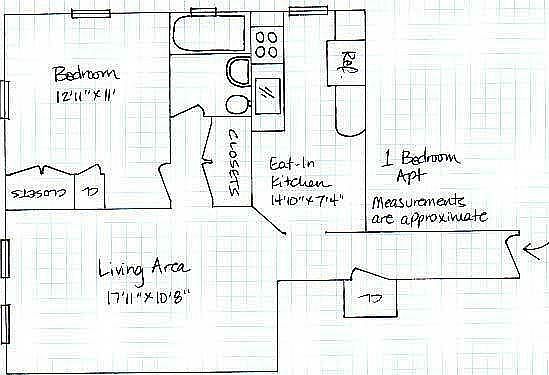 Bedroom
12'11" x 11'
Ref
CLOSETS
CLOSETS
CL
Eat-In
Kitchen
14'10" x 7'4"
1 Bedroom
Apt
Measurements
are approximate
Living Area
17'11" x 10'8"
CL